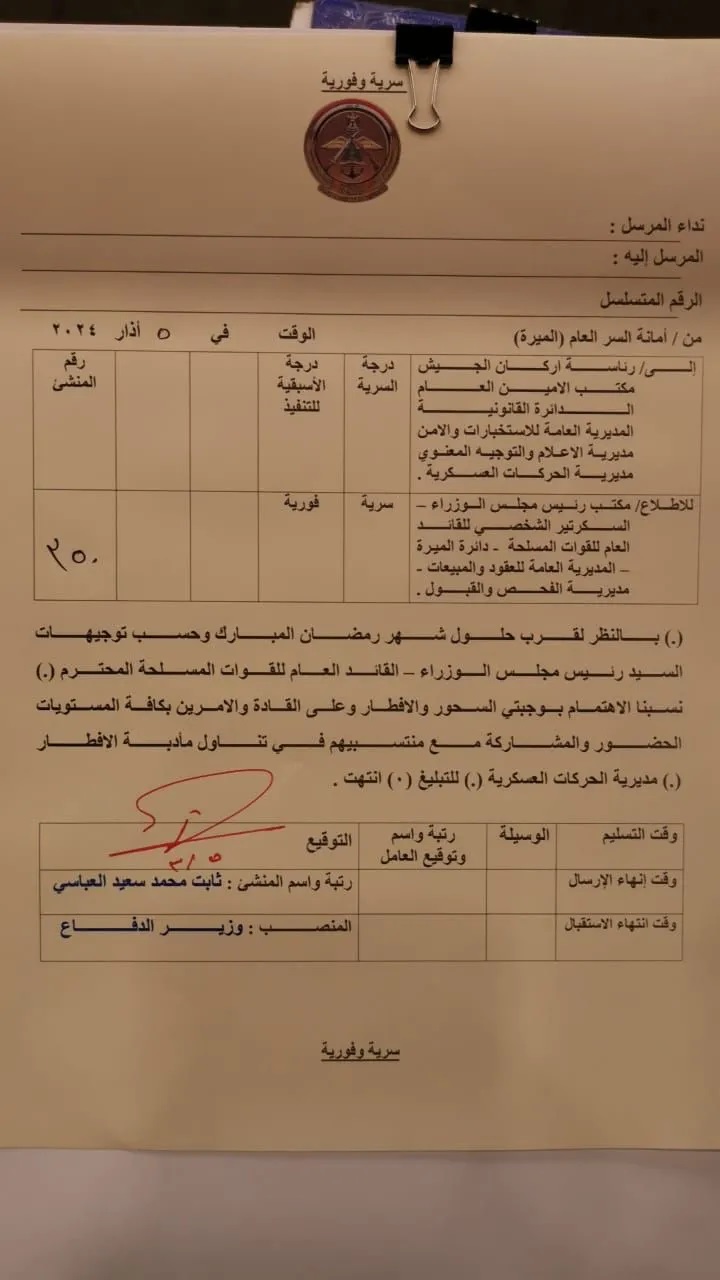 سرية وفورية
نداء المرسل :
المرسل إليه :
الرقم المتسلسل
من / أمانة السر العام (الميرة) الوقت في ٥ أذار ٢٠٢٤
إلى/ رئاسة اركان الجيش
مكتب الامين العام
الدائرة القانونية
المديرية العامة للاستخبارات والامن
مديرية الاعلام والتوجيه المعنوي
مديرية الحركات العسكرية .
درجة
السرية
درجة
الأسبقية
للتنفيذ
رقم
المنشئ
للاطلاع/ مكتب رئيس مجلس الوزراء –
السكرتير الشخصي للقائد
العام للقوات المسلحة - دائرة الميرة
– المديرية العامة للعقود والمبيعات -
مديرية الفحص والقبول .
سرية
فورية
٣٥٠
(.) بالنظر لقرب حلول شهر رمضان المبارك وحسب توجيهات
السيد رئيس مجلس الوزراء – القائد العام للقوات المسلحة المحترم (.)
نسبنا الاهتمام بوجبتي السحور والافطار وعلى القادة والامرين بكافة المستويات
الحضور والمشاركة مع منتسبيهم في تناول مأدبة الافطار
(.) مديرية الحركات العسكرية (.) للتبليغ (٠) انتهت .
وقت التسليم
الوسيلة
رتبة واسم
وتوقيع العامل
التوقيع
٣/٥
وقت إنهاء الإرسال
رتبة واسم المنشئ : ثابت محمد سعيد العباسي
وقت انتهاء الاستقبال
المنصب : وزير الدفاع
سرية وفورية